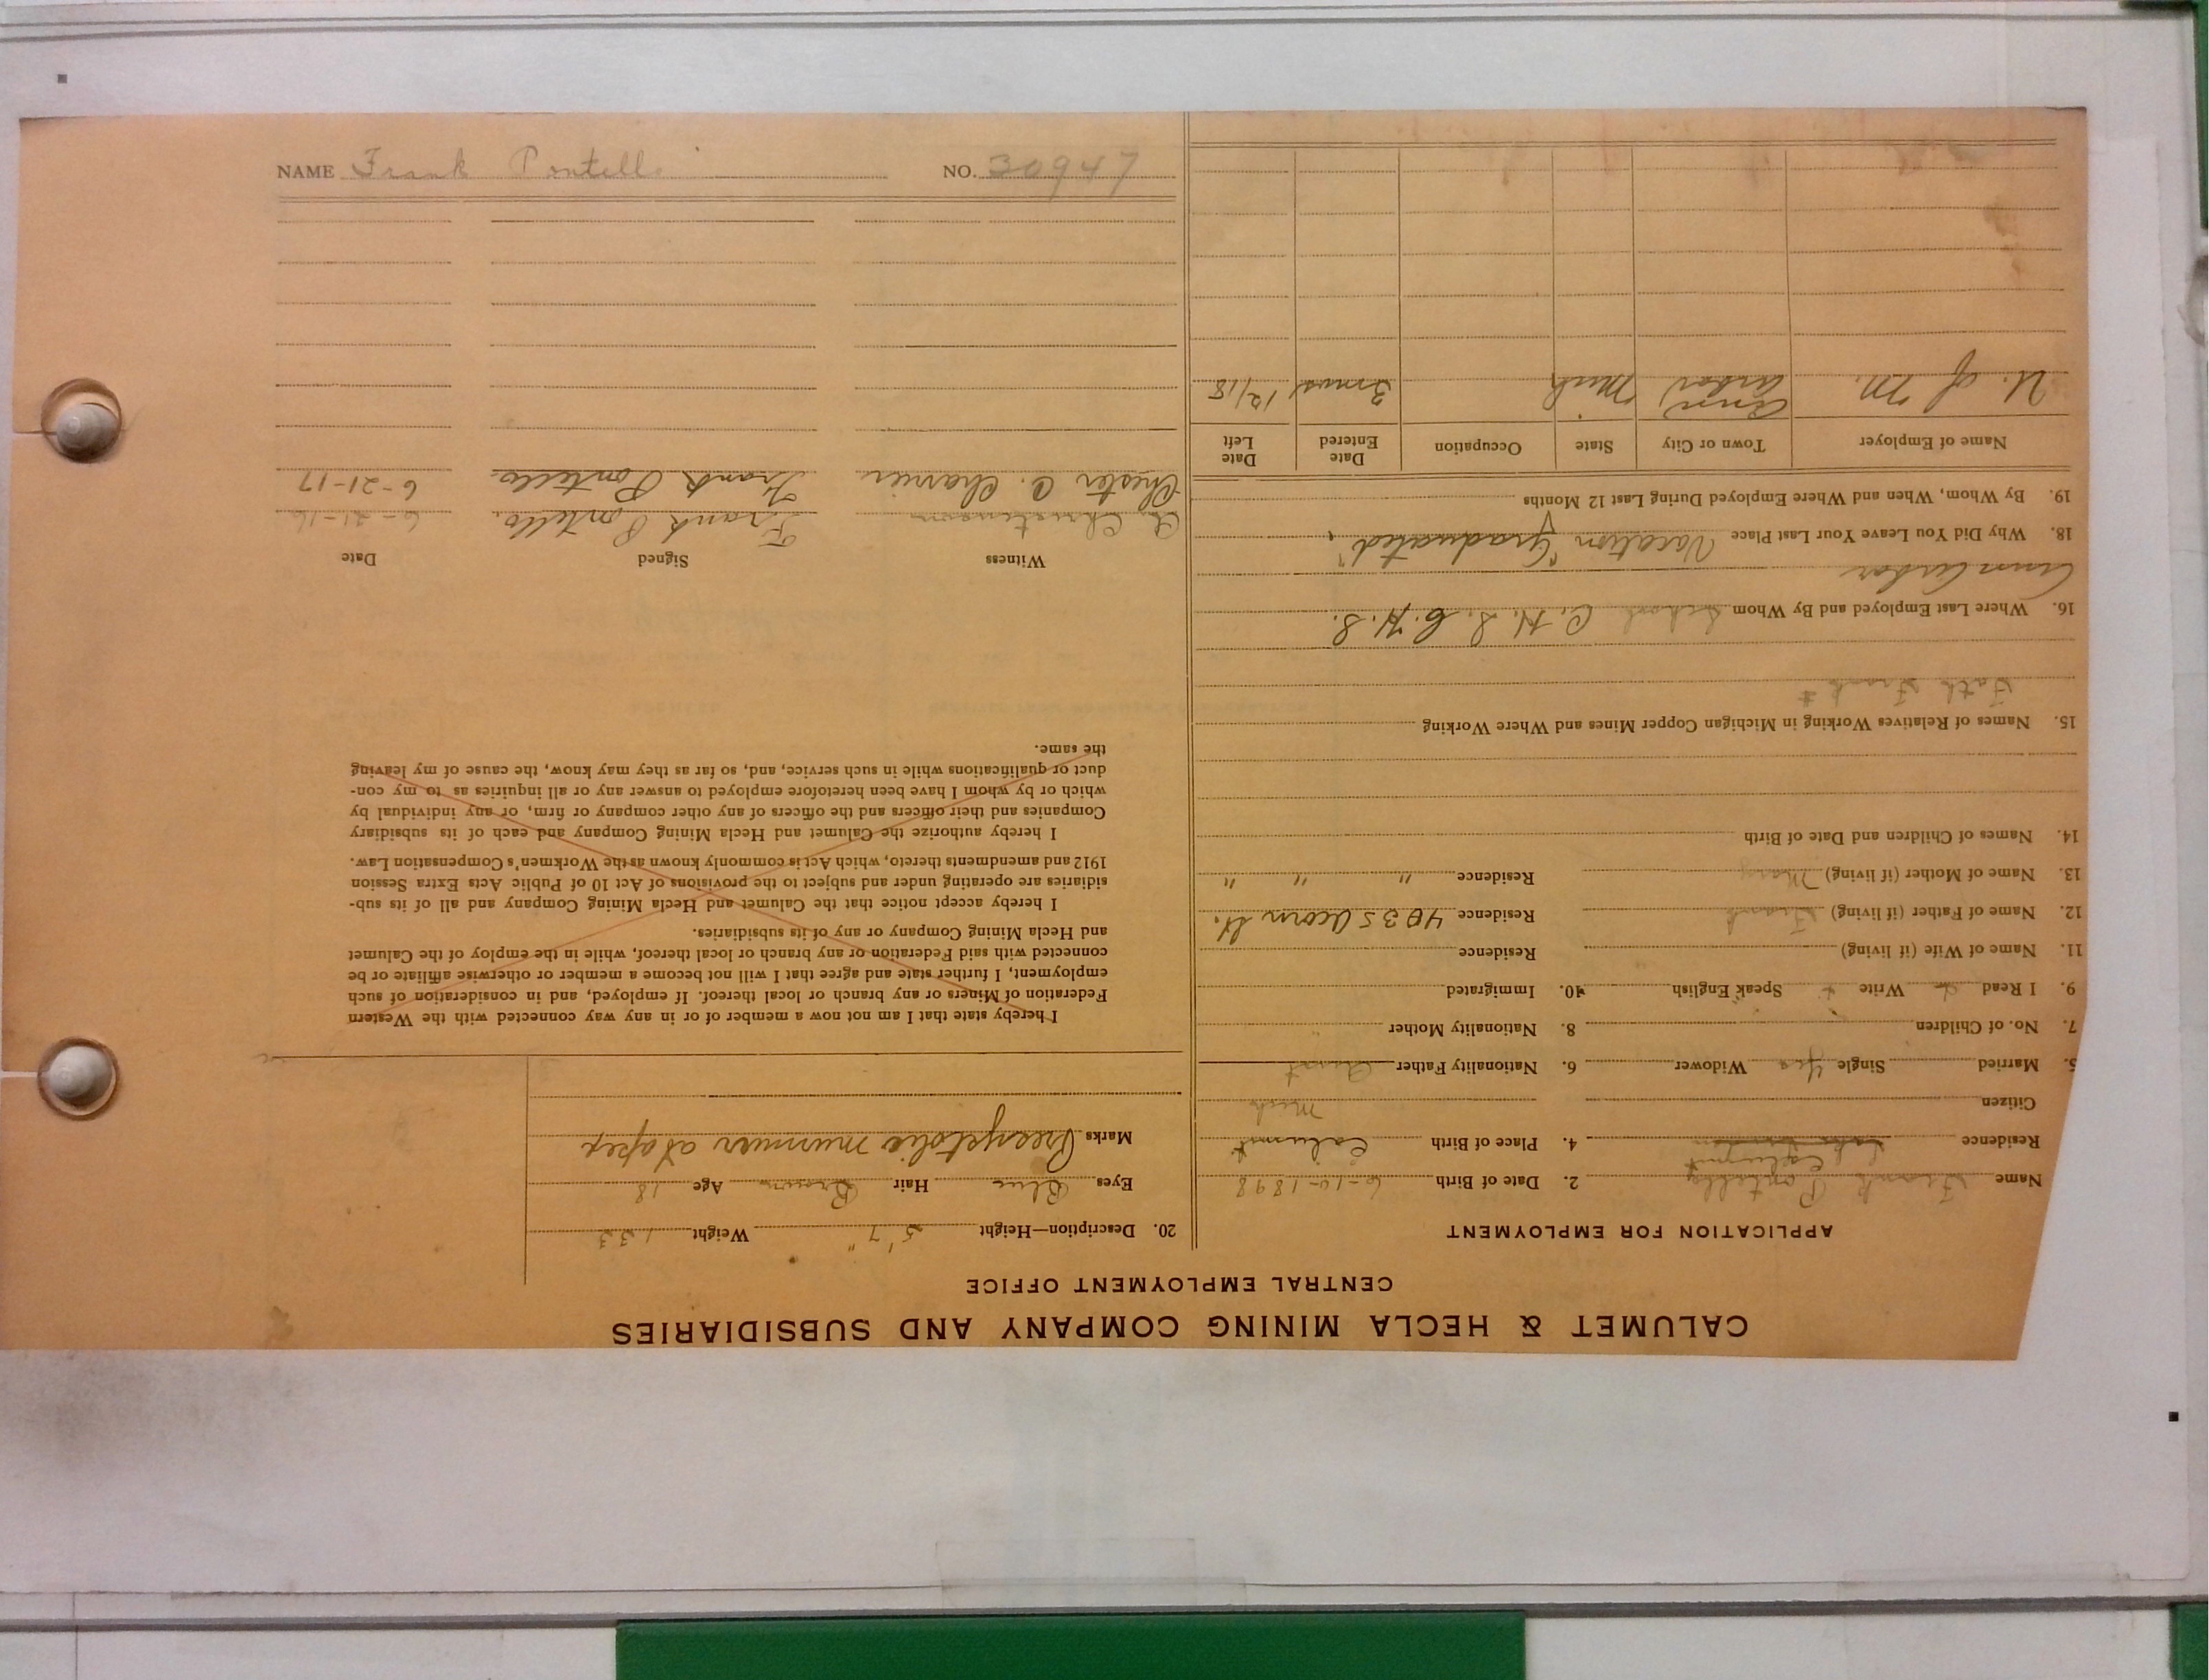 CALUMET & HECLA MINING COMPANY AND SUBSIDIARIES
CENTRAL EMPLOYMENT OFFICE
APPLICATION FOR EMPLOYMENT
Name Frank Pontello 2. Date of Birth 6-10-1898
Calumet
Residence 4. Place of Birth Calumet
Citizen Mich
5. Married Single Yes Widower 6. Nationality Father
7. No. of Children 8. Nationality Mother "
9. I Read Write Speak English 10. Immigrated
11. Name of Wife (if living) Residence
12. Name of Father (if living) Frank Residence 4035 Acorn St.
13. Name of Mother (if living) Mary Residence " " "
14. Names of Children and Date of Birth
15. Names of Relatives Working in Michigan Copper Mines and Where Working
Fath Frank
16. Where Last Employed and By Whom School C. H. S. C. H. S.
Ann Arbor
18. Why Did You Leave Your Last Place Vacation "Graduated"
19. By Whom, When and Where Employed During Last 12 Months
Name of Employer Town or City State Occupation Date Entered Date Left
U. of M. Ann Arbor Mich 3 mos 12/18
20. Description—Height 5' 7" Weight 133
Eyes Blue Hair Brown Age 18
Marks Presystolic murmur at apex
I hereby state that I am not now a member of or in any way connected with the Western
Federation of Miners or any branch or local thereof. If employed, and in consideration of such
employment, I further state and agree that I will not become a member or otherwise affiliate or be
connected with said Federation or any branch or local thereof, while in the employ of the Calumet
and Hecla Mining Company or any of its subsidiaries.
I hereby accept notice that the Calumet and Hecla Mining Company and all of its sub-
sidiaries are operating under and subject to the provisions of Act 10 of Public Acts Extra Session
1912 and amendments thereto, which Act is commonly known as the Workmen's Compensation Law.
I hereby authorize the Calumet and Hecla Mining Company and each of its subsidiary
Companies and their officers and the officers of any other company or firm, or any individual by
which or by whom I have been heretofore employed to answer any or all inquiries as to my con-
duct or qualifications while in such service, and, so far as they may know, the cause of my leaving
the same.
Witness Signed Date
Frank Pontello. 6-21-16
Chester A. Frank Pontello 6-21-17
NAME Frank Pontello NO. 30947